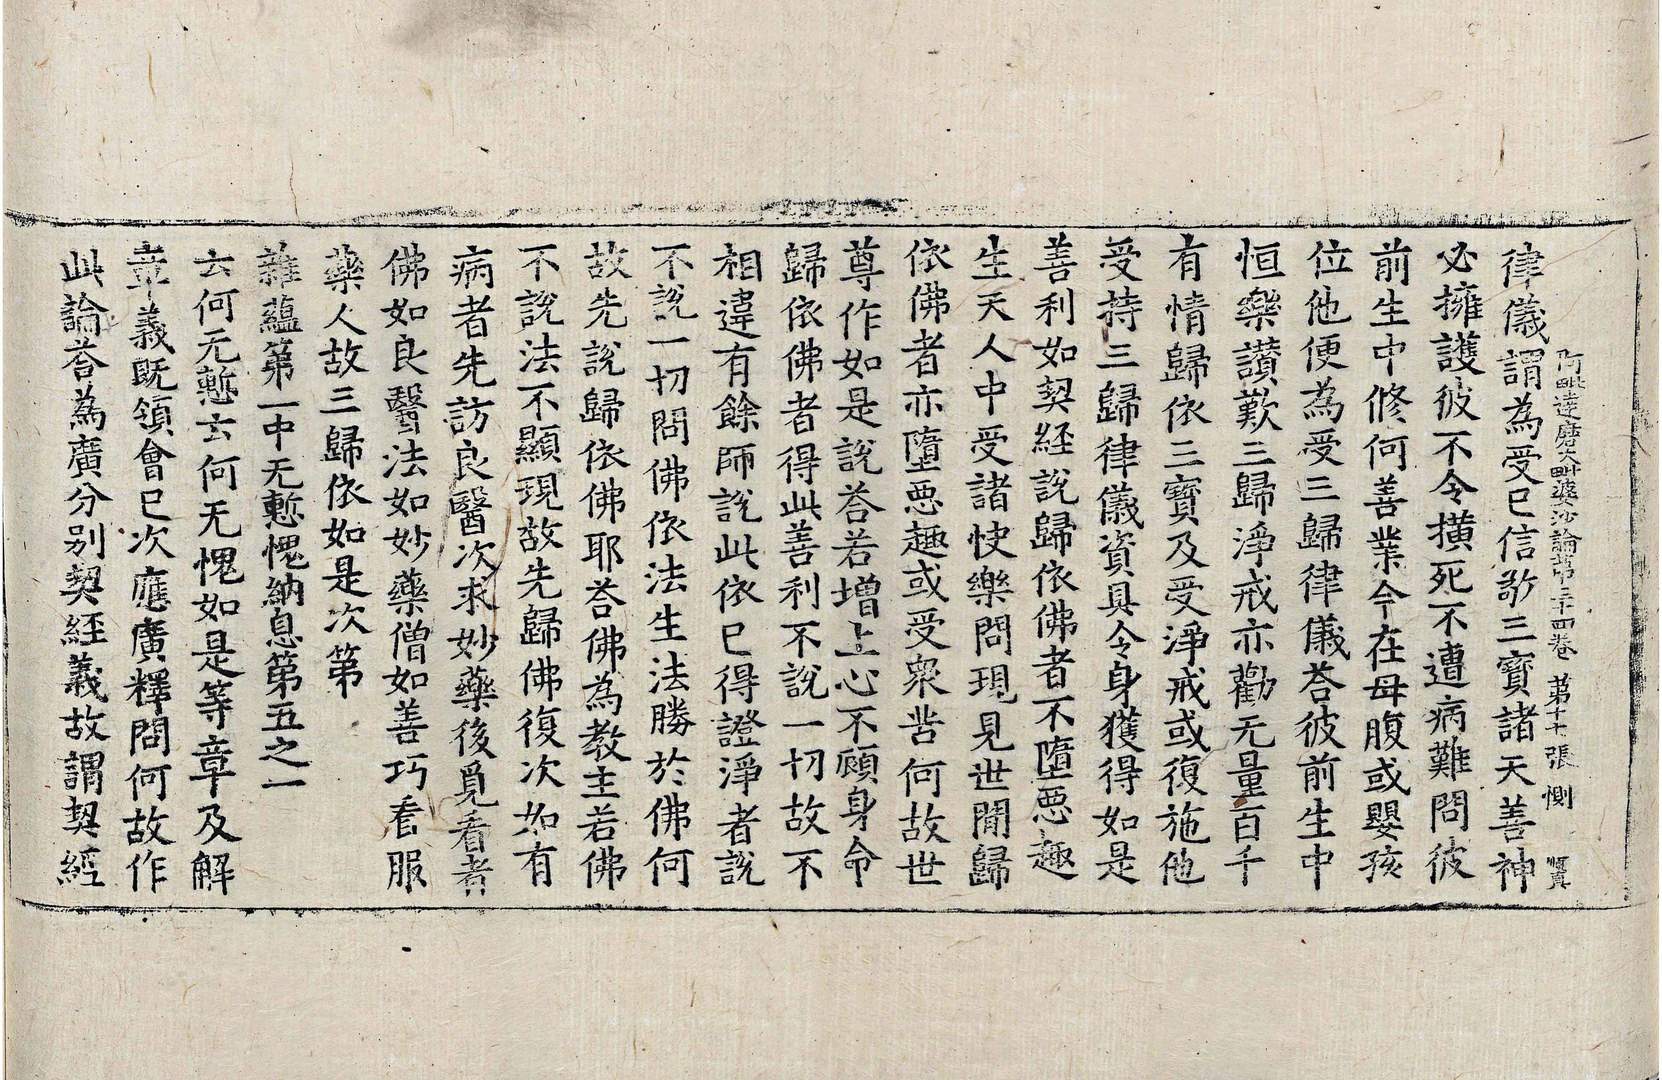 阿毗達磨大毗婆沙論第三十四卷 第十七張 惻
律儀謂為受已信敬三寶諸天善神
必擁護彼不令横死不遭病難問彼
前生中修何善業今在母腹或嬰孩
位他便為受三歸律儀荅彼前生中
恒樂讃歎三歸淨戒亦勸无量百千
有情歸依三寶及受淨戒或復施他
受持三歸律儀資具令身獲得如是
善利如契経說歸依佛者不墮惡趣
生天人中受諸快樂問現見世間歸
依佛者亦墮惡趣或受衆苦何故世
尊作如是說荅若增上心不顧身命
歸依佛者得此善利不說一切故不
相違有餘師說此依已得證淨者說
不說一切問佛依法生法勝於佛何
故先說歸依佛耶荅佛為教主若佛
不說法不顯現故先歸佛復次如有
病者先訪良醫次求妙藥後覓看者
佛如良醫法如妙藥僧如善巧看服
藥人故三歸依如是次第
雜蘊第一中无慙愧納息第五之一
云何无慙云何无愧如是等章及解
章義既領會已次應廣釋問何故作
此論荅為廣分別契経義故謂契經